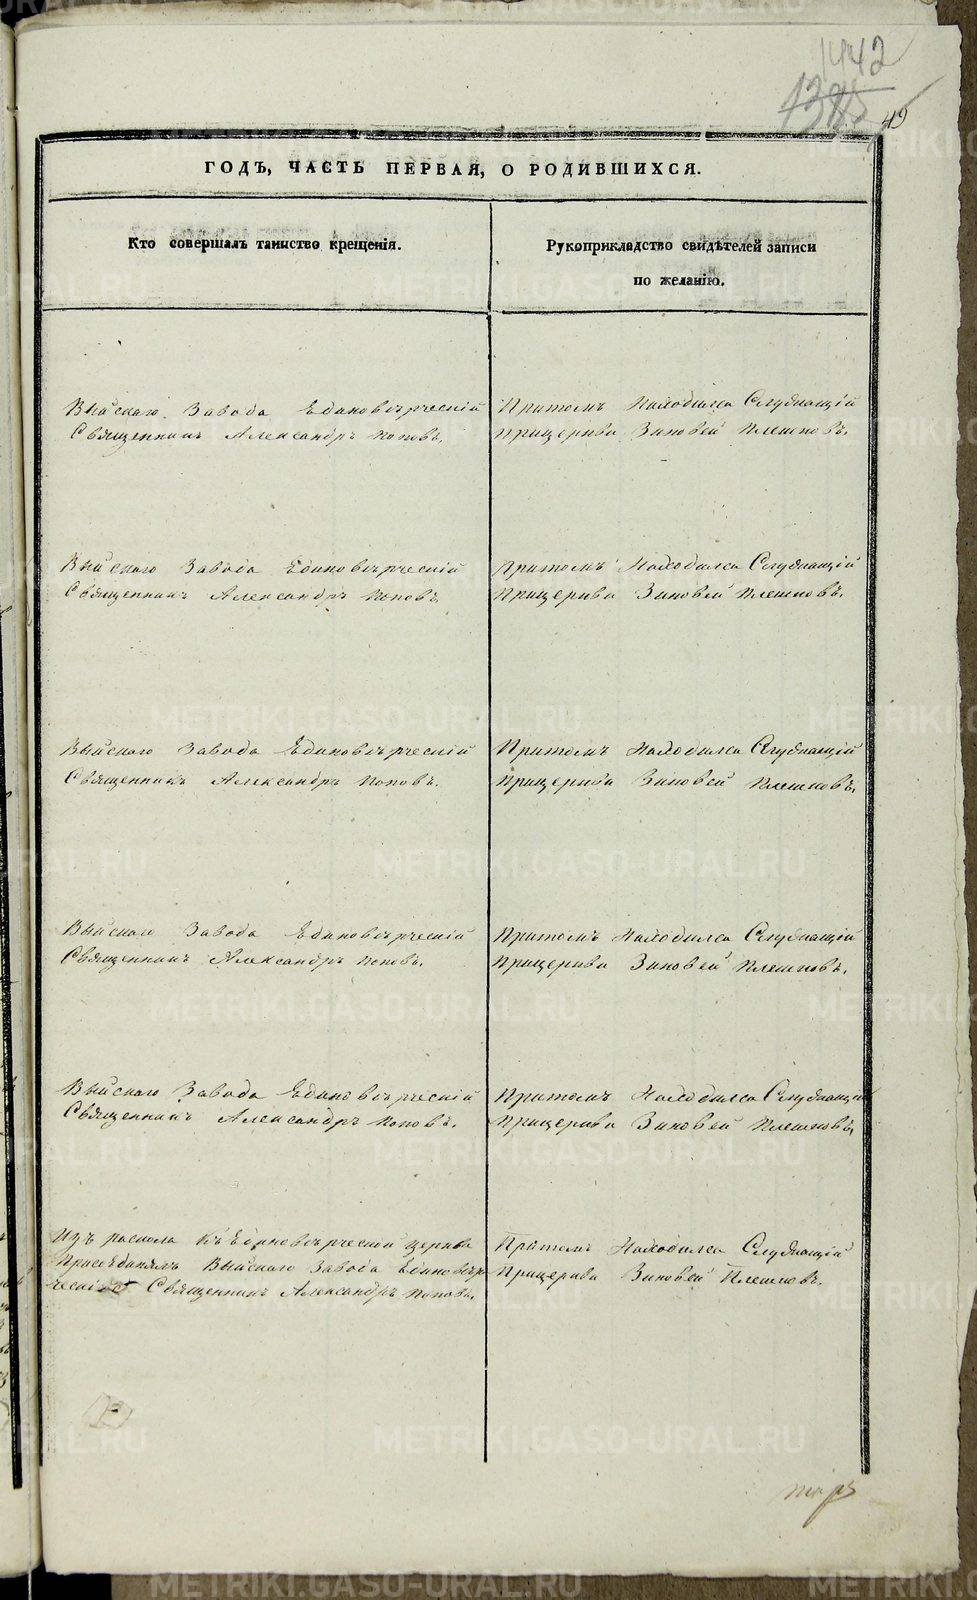 1442
1385
49
ГОДЪ, ЧАСТЬ ПЕРВАЯ, О РОДИВШИХСЯ.
Кто совершалъ таинство крещенія.
Рукоприкладство свидѣтелей записи
по желанію.
Выйскаго Завода Единовѣрческій
Священникъ Александръ Поповъ.
Притомъ Находился Служащій
Прицеркви Зиновей Плешковъ.
Выйскаго Завода Единовѣрческій
Священникъ Александръ Поповъ.
Притомъ Находился Служащій
Прицеркви Зиновей Плешковъ.
Выйскаго Завода Единовѣрческій
Священникъ Александръ Поповъ.
Притомъ Находился Служащій
Прицеркви Зиновей Плешковъ.
Выйскаго Завода Единовѣрческій
Священникъ Александръ Поповъ.
Притомъ Находился Служащій
Прицеркви Зиновей Плешковъ.
Выйскаго Завода Единовѣрческій
Священникъ Александръ Поповъ.
Притомъ Находился Служащій
Прицеркви Зиновей Плешковъ.
Изъ раскола Къ Единовѣрческой церкви
Присѣдинялъ Выйскаго Завода Единовѣр
ческій Священникъ Александръ Поповъ.
Притомъ Находился Служащій
Прицеркви Зиновей Плешковъ.
METRIKI.GASO-URAL.RU